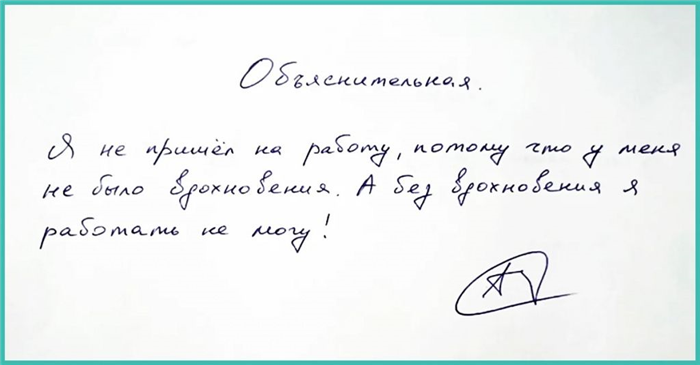 Объяснительная.
Я не пришёл на работу, потому что у меня
не было вдохновения. А без вдохновения я
работать не могу!